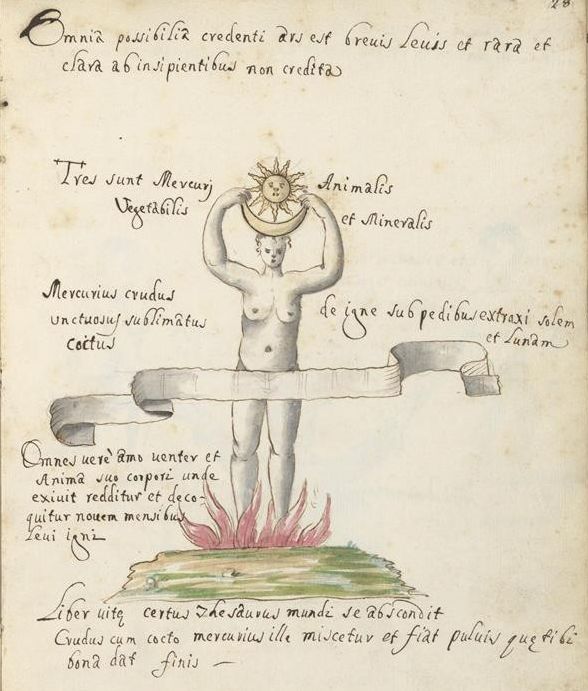 28
Omnia possibilia credenti ars est brevis Leuis et rara et
clara ab insipientibus non credita
Tres sunt Mercurj Animalis
Vegetabilis et Mineralis
Mercurius crudus
unctuosus sublimatus
coctus
de igne sub pedibus extraxi solem
et Lunam
Omnes uerè amo uenter et
Anima suo corpori unde
exiuit redditur et deco-
quitur nouem mensibus
Leui igni
Liber uitę certus Thesaurus mundi se abscondit
Crudus cum cocto mercurius ille miscetur et fiat puluis quę tibi
bona dat finis —